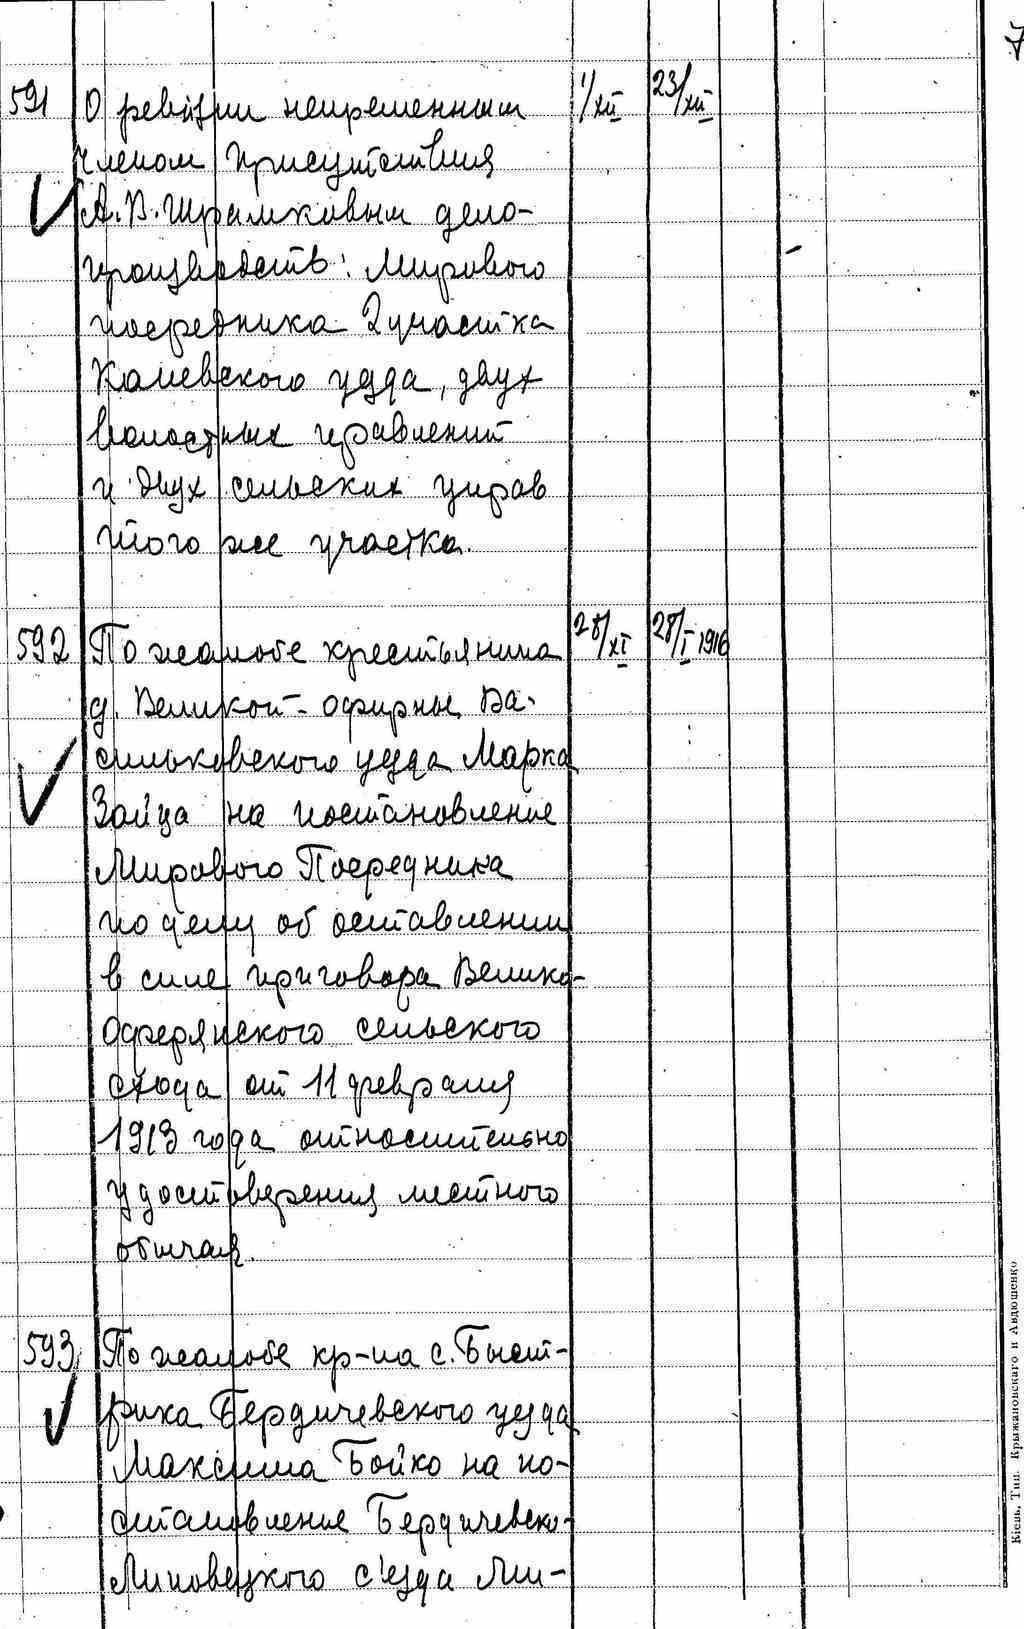 7
591 О ревизии непременным 1/XII 23/XII
членом Присутствия
А.В. Шрамковым дело-
производств: Мирового
посредника 2 участка
Каневского уезда, двух
волостных правлений
и двух сельских управ
того же участка.
592 По жалобе крестьянина 28/XI 28/I 1916
д. Великой-Офирны Ва-
сильковского уезда Марка
Зайца на постановление
Мирового Посредника
по делу об оставлении
в силе приговора Велико-
Оферянского сельского
схода от 11 февраля
1913 года относительно
удостоверения местного
обычая.
593 По жалобе кр-на с. Быст-
рика Бердичевского уезда
Максима Бойко на по-
становление Бердичевско-
Липовецкого с'езда Ми-
Кіевъ, Тип. Крыжановскаго и Авдюшенко